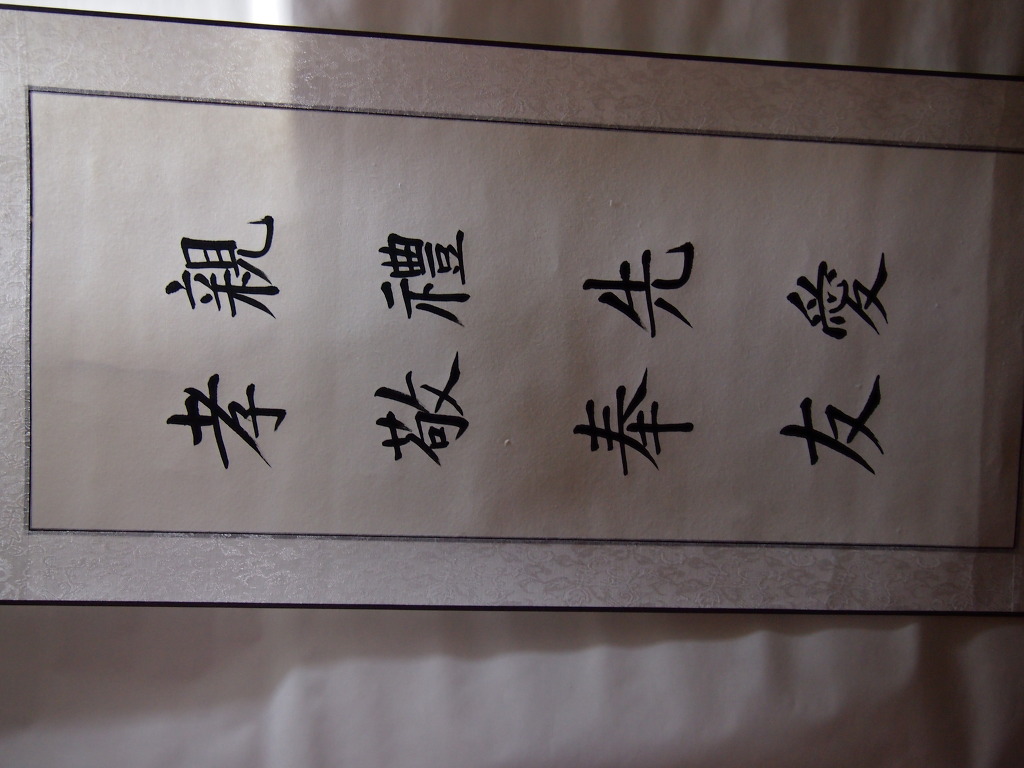 孝親
敬禮
奉先
友愛